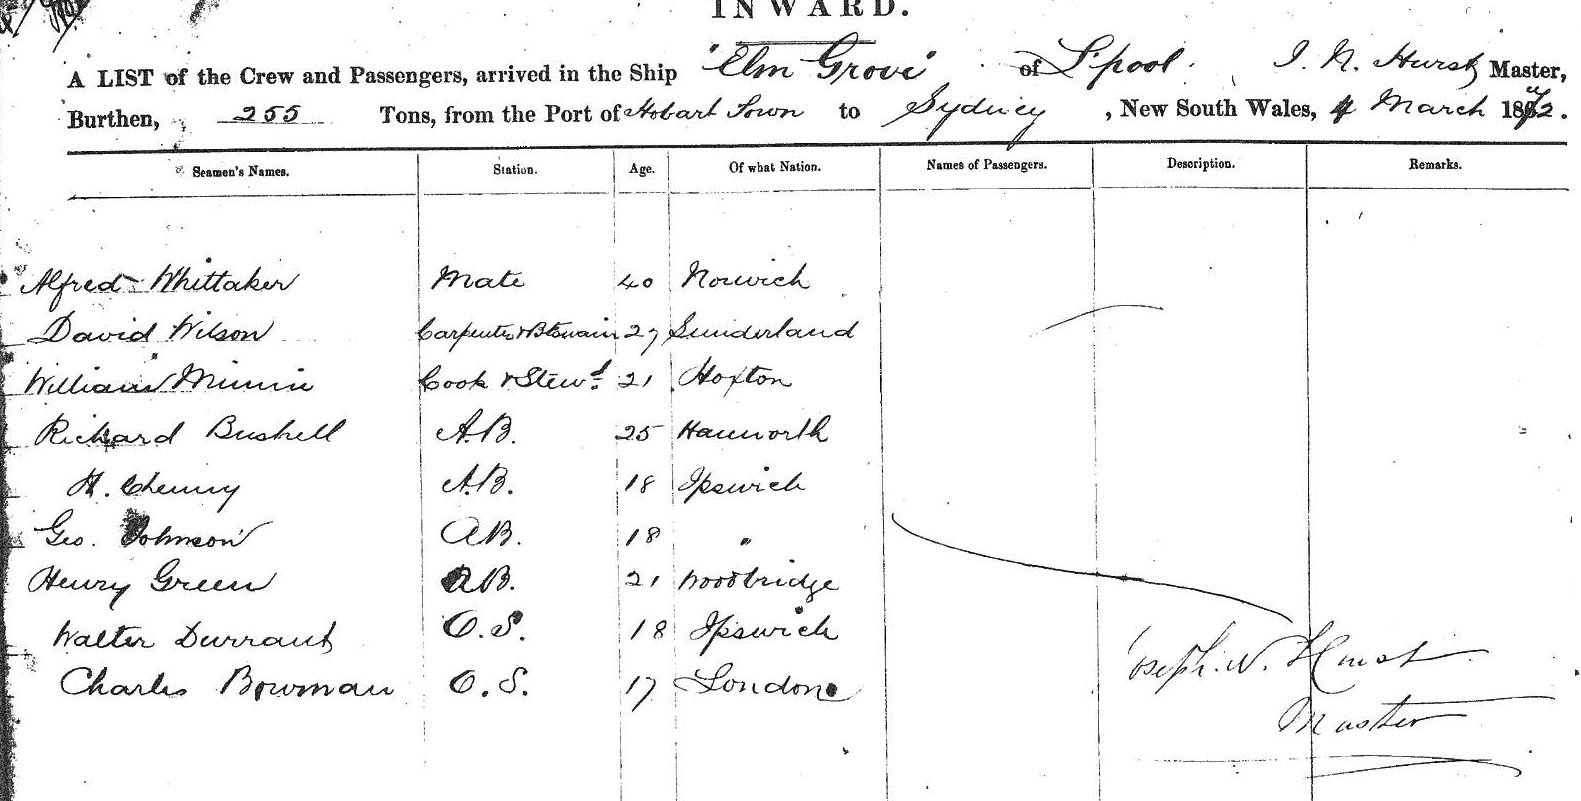 INWARD.
A LIST of the Crew and Passengers, arrived in the Ship "Elm Grove" of L'pool. J. N. Hurst Master,
Burthen, 255 Tons, from the Port of Hobart Town to Sydney, New South Wales, 4 March 1872.
Seamen's Names. Station. Age. Of what Nation. Names of Passengers. Description. Remarks.
Alfred Whittaker Mate 40 Norwich
David Wilson Carpenter & Btswain 27 Sunderland
William Cook & Stewd 21 Hoxton
Richard Bushell A.B. 25 Hanworth
H. A.B. 18 Ipswich
Geo. Johnson AB. 18 "
Henry Green AB. 21 Woodbridge
Walter Durrant O.S. 18 Ipswich
Charles Bowman O.S. 17 London
Joseph. N. Hurst
Master